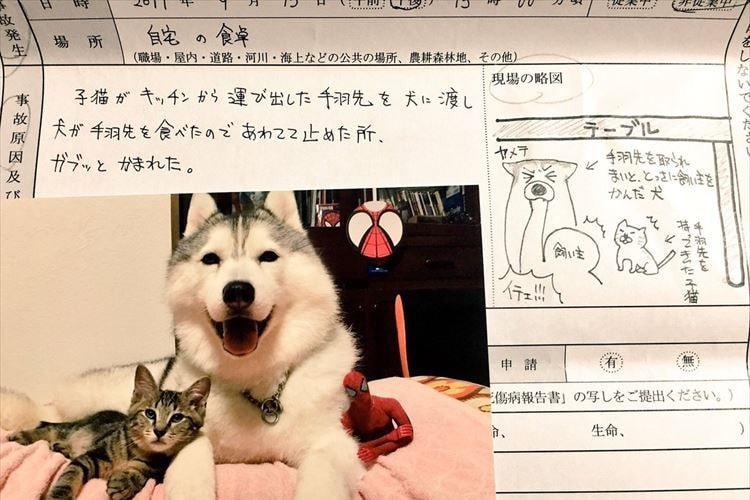 事故発生
日時
2017年9月
午前
午後
分頃
従業中
非従業中
場所
自宅の食卓
(職場・屋内・道路・河川・海上などの公共の場所、農耕森林地、その他)
事故原因及び
子猫がキッチンから運び出した手羽先を犬に渡し
犬が手羽先を食べたのであわてて止めた所、
ガブッとかまれた。
現場の略図
テーブル
ヤメテ
手羽先を取られ
まいと、とっさに飼い主を
かんだ犬
飼い主
イテェ!!!
手羽先を
持ってきた子猫
申請
有
無
傷病報告書」の写しをご提出ください。)
生命、
)